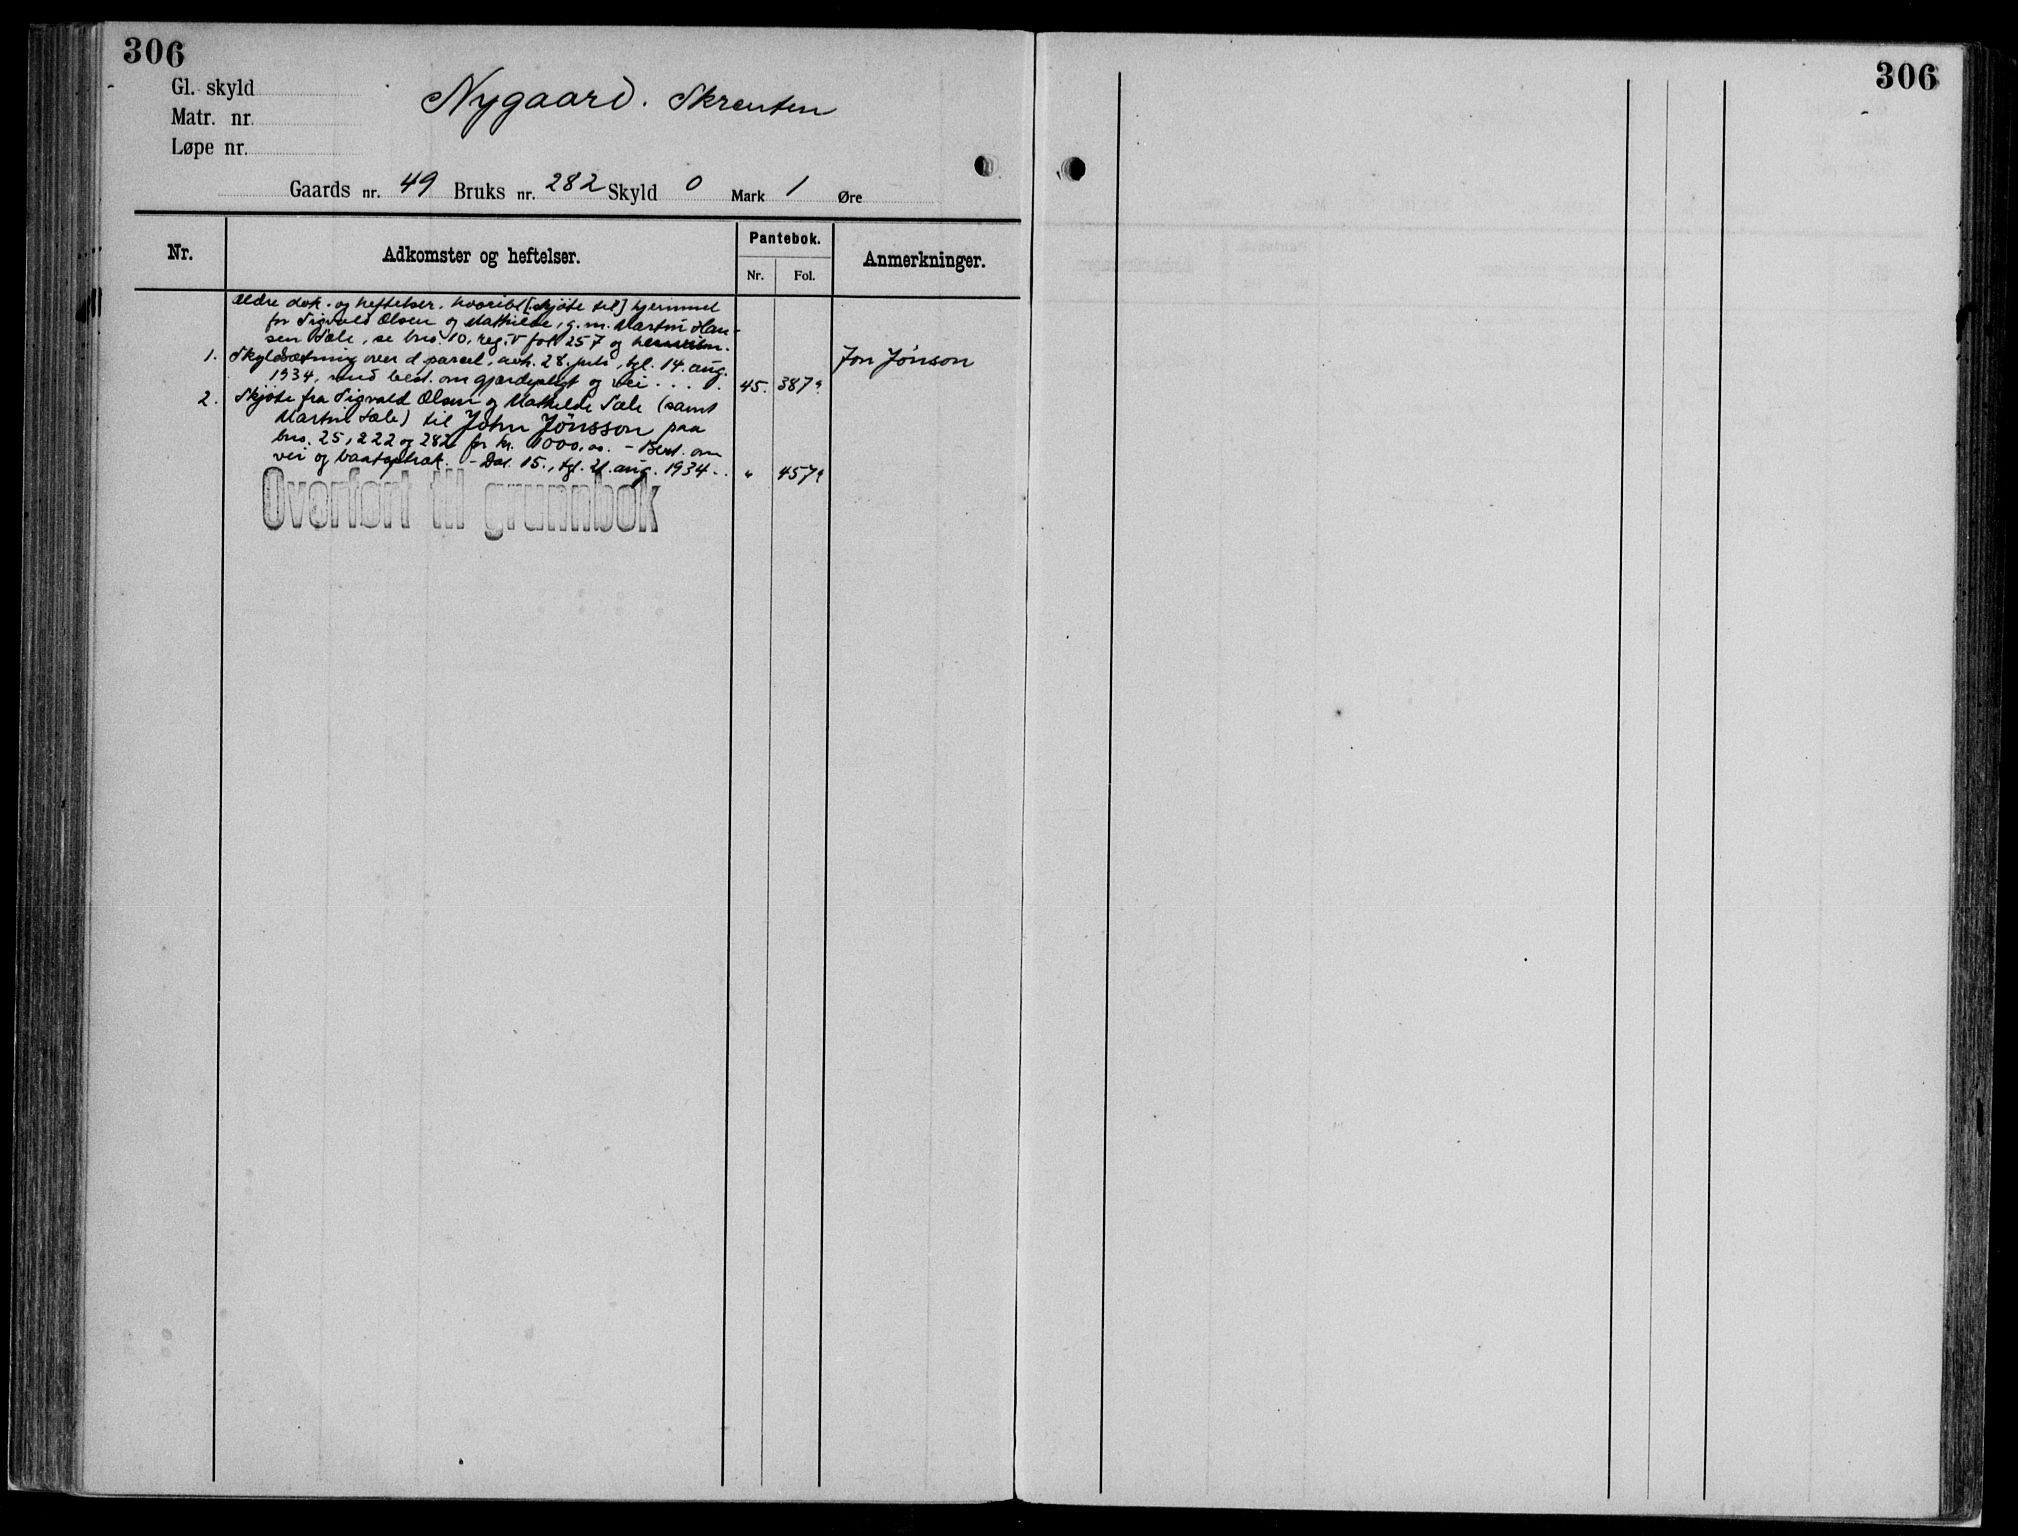 306
306
Gl. skyld
Nygaard. Skrenten
Matr. nr.
Løpe nr.
Gaards nr. 49 Bruks nr. 282 Skyld 0 Mark 1 Øre
Nr. Adkomster og heftelser. Pantebok. Anmerkninger.
Nr. Fol.
Ældre dok. og heftelser, hvoribl. [skjøte til] hjemmel
for Sigvald Olsen og Mathilde, g. m. Martin Han-
sen Sæle, se bno. 10, reg. V fol 257 og
1. Skyldsætning over d. parcel, avh. 28. juli, tgl. 14. aug. Jon Jónson
1934, med best. om gjerdepligt og vei . . . . 45. 387
2. Skjøte fra Sigvald Olsen og Mathilde Sæle (samt
Martin Sæle) til John Jönsson paa
bno. 25, 222 og 282 for kr. 1000,00. - Best. om
vei og baatoptræk. - Dat. 15., tgl. 21. aug. 1934 . . " 457
Overført til grunnbok